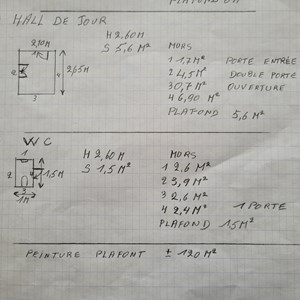 HALL DE JOUR
H 2,60M
S 5,6 M²
2,10M
1
2
3
4
2,65M
MURS
1 1,7M² PORTE ENTRÉE
2 4,5M² DOUBLE PORTE
3 0,7M² OUVERTURE
4 6,90 M²
PLAFOND 5,6 M²
WC
H 2,60M
S 1,5 M²
1
2
3
4
1,5M
1M
MURS
1 2,6 M²
2 3,9 M²
3 2,6 M²
4 2,4 M² 1 PORTE
PLAFOND 1,5 M²
PEINTURE PLAFONT ± 120 M²